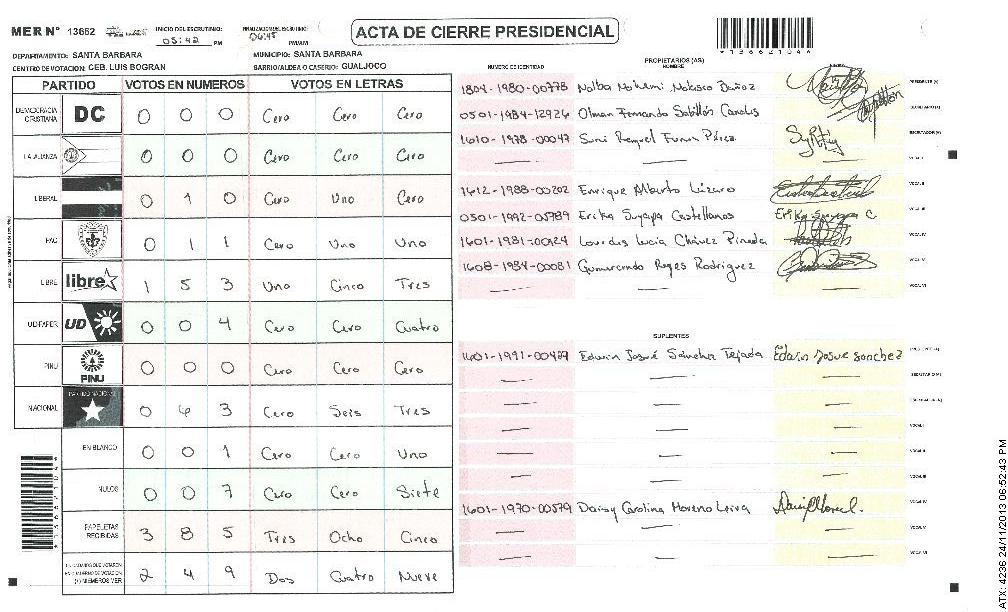 MER Nº 13662
INICIO DEL ESCRUTINIO: 05:42 PM
PM/AM
ACTA DE CIERRE PRESIDENCIAL
DEPARTAMENTO: SANTA BARBARA
MUNICIPIO: SANTA BARBARA
CENTRO DE VOTACION: CEB. LUIS BOGRAN
BARRIO/ALDEA O CASERIO: GUALJOCO
PARTIDO VOTOS EN NUMEROS VOTOS EN LETRAS
DEMOCRACIA CRISTIANA DC 0 0 0 Cero Cero Cero
LA ALIANZA 0 0 0 Cero Cero Cero
LIBERAL 0 1 0 Cero Uno Cero
PAC 0 1 1 Cero Uno Uno
LIBRE libre 1 5 3 Uno Cinco Tres
UD-FAPER UD 0 0 4 Cero Cero Cuatro
PINU PINU 0 0 0 Cero Cero Cero
NACIONAL PARTIDO NACIONAL 0 6 3 Cero Seis Tres
EN BLANCO 0 0 1 Cero Cero Uno
NULOS 0 0 7 Cero Cero Siete
PAPELETAS RECIBIDAS 3 8 5 Tres Ocho Cinco
2 4 9 Dos Cuatro Nueve
PROPIETARIOS (AS)
NUMERO DE IDENTIDAD NOMBRE
1804-1980-00778 Nolba Nohemi
0501-1984-12926 Olman Fernando Sabillón Canales
1610-1978-00047 Suni Raquel Funez Pérez
1612-1988-00202 Enrique Alberto Lázaro
0501-1992-05789 Erika Suyapa Castellanos Erika Suyapa C
1601-1981-00424 Lourdes Lucia Chávez Pineda
1608-1984-00081 Gumercindo Reyes Rodriguez
SUPLENTES
1601-1991-00489 Edwin Josué Sánchez Tejada Edwin Josue Sanchez
1601-1970-00579 Daisy Carolina Moreno Leiva
ATX: 4236 24/11/2013 06:52:43 PM